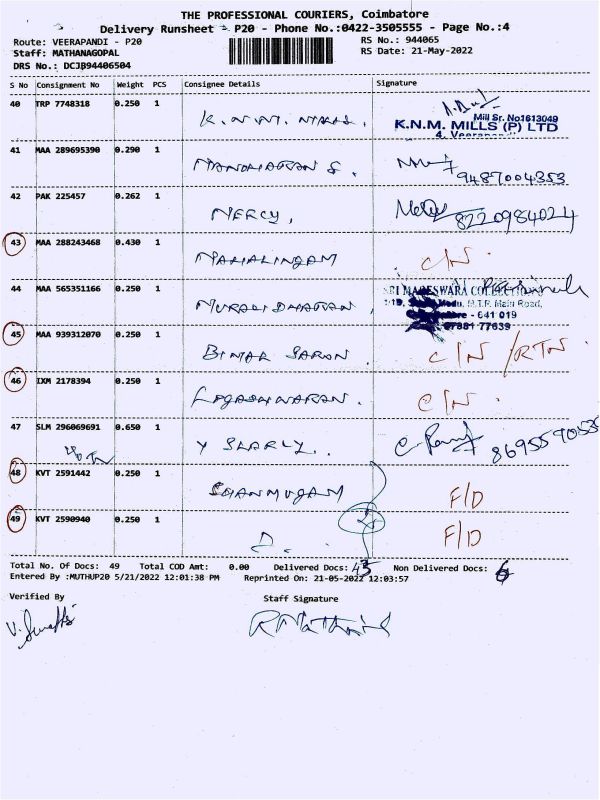 THE PROFESSIONAL COURIERS, Coimbatore
Delivery Runsheet - P20 - Phone No.:0422-3505555 - Page No.:4
Route: VEERAPANDI - P20 RS No.: 944065
Staff: MATHANAGOPAL RS Date: 21-May-2022
DRS No.: DCJB94406504
S No Consignment No Weight PCS Consignee Details Signature
40 TRP 7748318 0.250 1 K.N.M. MILLS.
Mill Sr. No1613049
K.N.M. MILLS (P) LTD
41 MAA 289695390 0.290 1 MANOHARAN S. 9487004353
42 PAK 225457 0.262 1 MERCY, 8220984024
43 MAA 288243468 0.430 1 MAHALINGAM C/N.
44 MAA 565351166 0.250 1 MURALIDHARAN
SRI MAGESWARA COLLECTIONS
M.T.P. Main Road,
- 641 019
07881 77639
45 MAA 939312070 0.250 1 BIMAL SARON C/N /RTN.
46 IXM 2178394 0.250 1 C/N.
47 SLM 296069691 0.650 1 Y SLARLY.
48 KVT 2591442 0.250 1 SHANMUGAM F/D
49 KVT 2590940 0.250 1 F/D
Total No. Of Docs: 49 Total COD Amt: 0.00 Delivered Docs: 43 Non Delivered Docs: 6
Entered By :MUTHUP20 5/21/2022 12:01:38 PM Reprinted On: 21-05-2022 12:03:57
Verified By Staff Signature